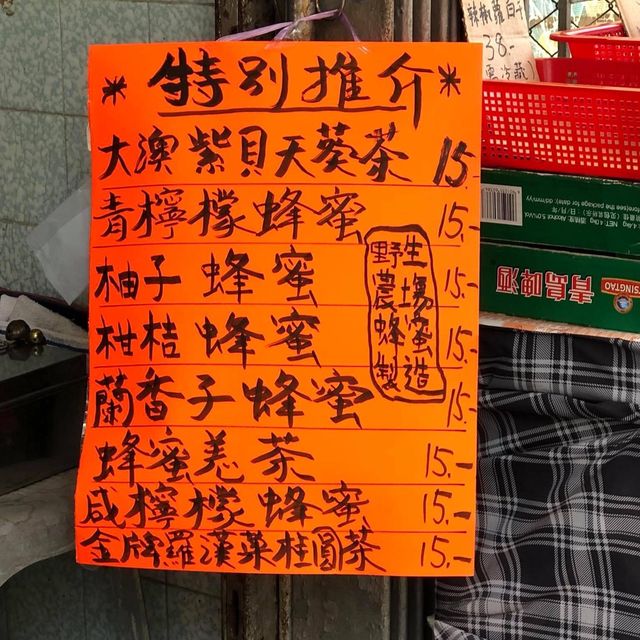 ＊特別推介＊
大澳紫貝天葵茶 15
青檸檬蜂蜜 15.-
柚子蜂蜜 15.-
柑桔蜂蜜 15.-
蘭香子蜂蜜 15.-
蜂蜜羌茶 15.-
咸檸檬蜂蜜 15.-
金牌羅漢菓桂圓茶 15.-
野生
農場
蜂蜜
製造
辣椒蘿白干
38-
青島啤酒
TSINGTAO